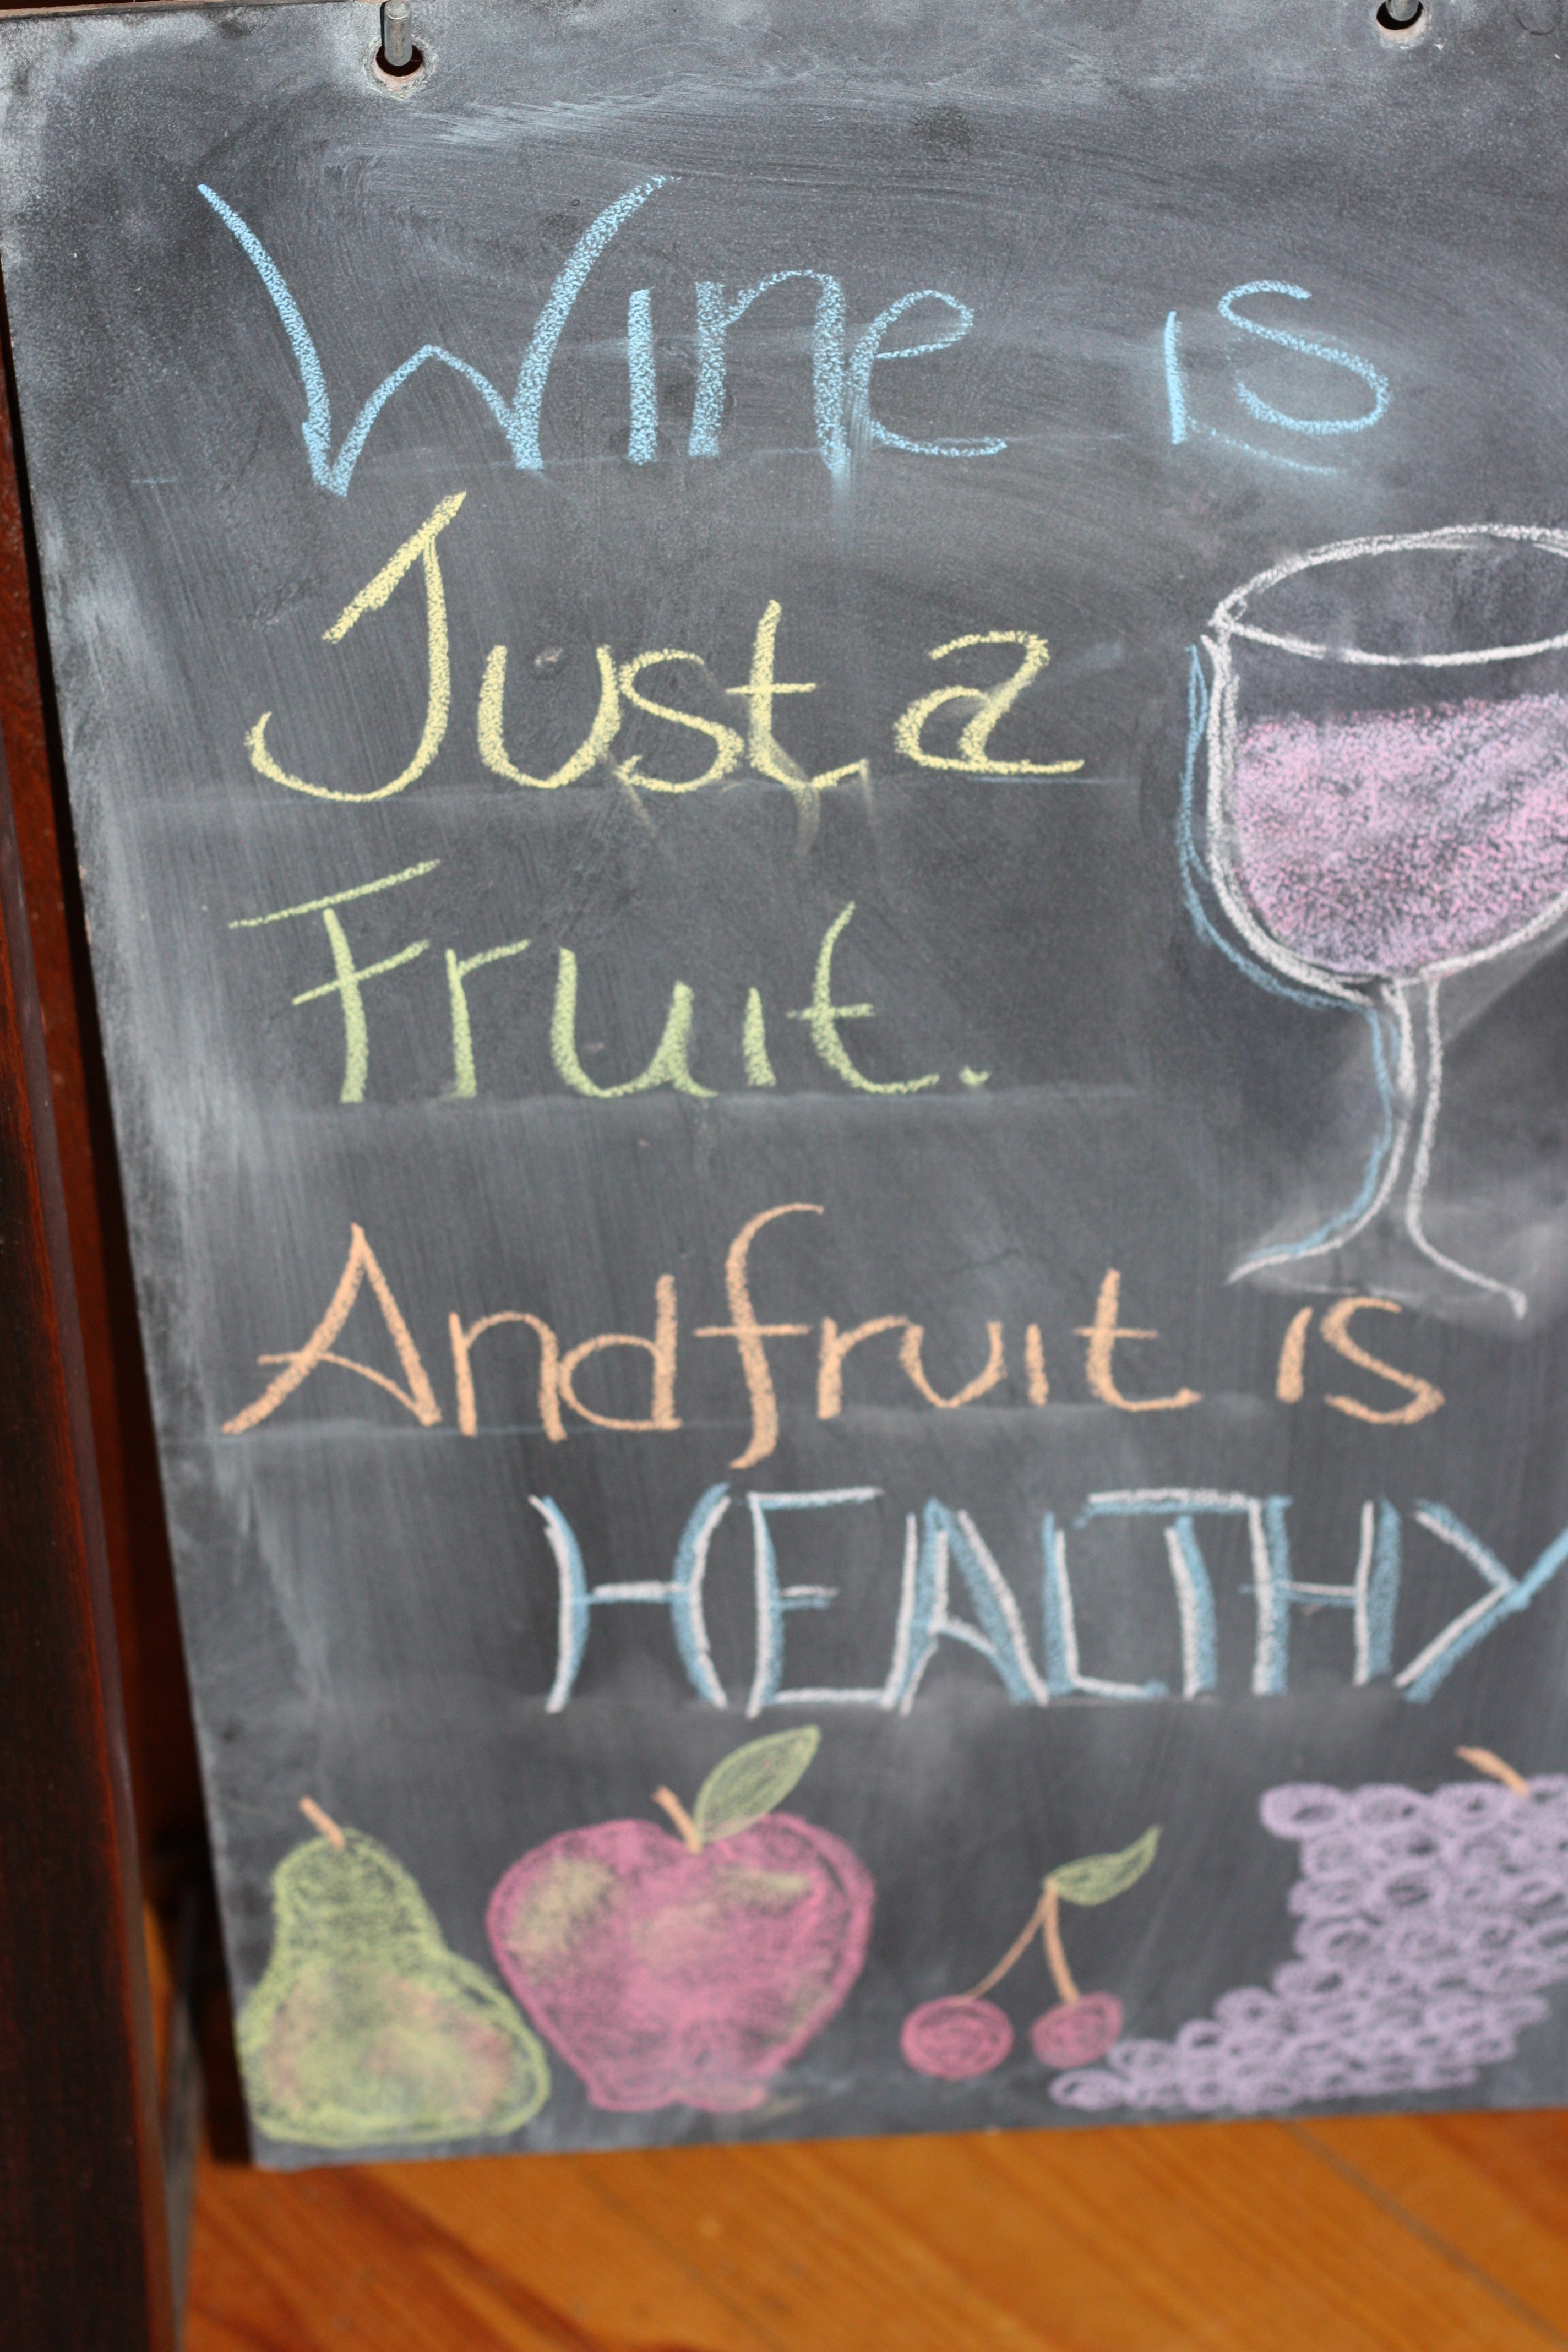 Wine is
Just a
Fruit.
And fruit is
HEALTHY